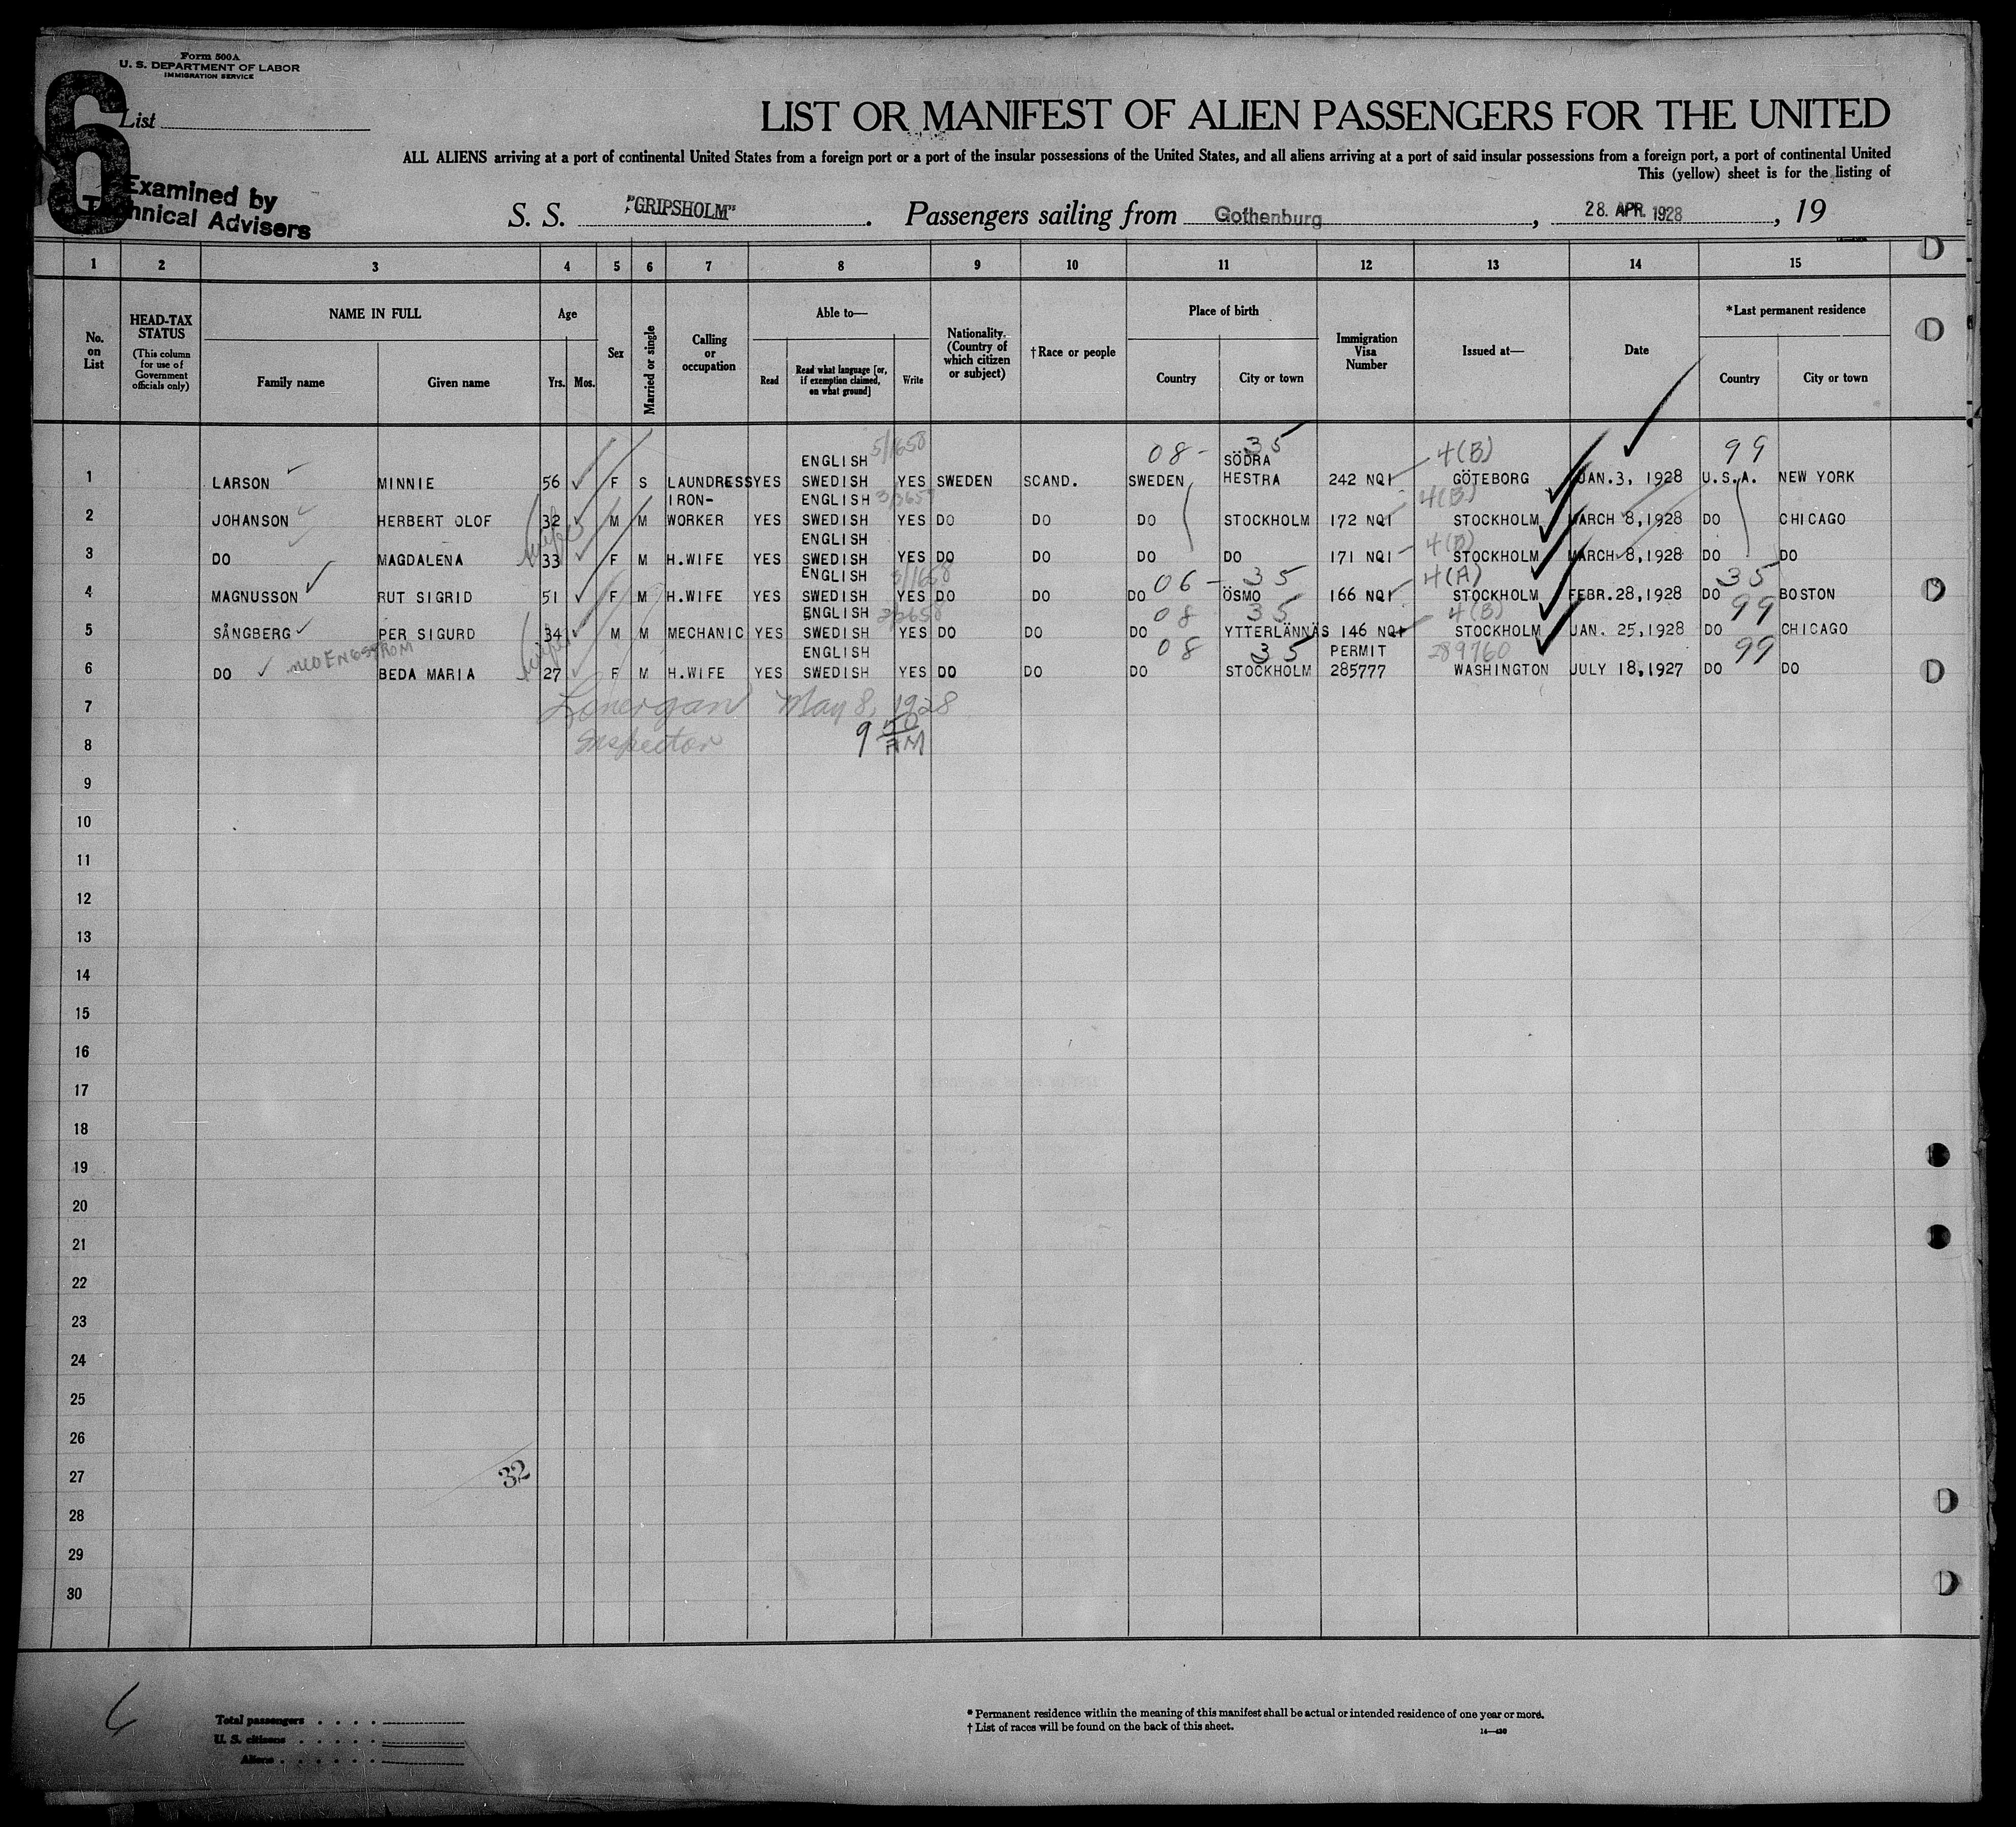 Form 500A
U. S. DEPARTMENT OF LABOR
IMMIGRATION SERVICE
6
List
LIST OR MANIFEST OF ALIEN PASSENGERS FOR THE UNITED
ALL ALIENS arriving at a port of continental United States from a foreign port or a port of the insular possessions of the United States, and all aliens arriving at a port of said insular possessions from a foreign port, a port of continental United
This (yellow) sheet is for the listing of
Examined by
Technical Advisers
S. S. "GRIPSHOLM". Passengers sailing from Gothenburg, 28. APR. 1928, 19
1 2 3 4 5 6 7 8 9 10 11 12 13 14 15
No. on List
HEAD-TAX STATUS
(This column for use of Government officials only)
NAME IN FULL
Family name Given name
Age
Yrs. Mos.
Sex
Married or single
Calling or occupation
Able to—
Read Read what language [or, if exemption claimed, on what ground] Write
Nationality. (Country of which citizen or subject)
†Race or people
Place of birth
Country City or town
Immigration Visa Number
Issued at—
Date
*Last permanent residence
Country City or town
08- 35 4(B) 99
ENGLISH SÖDRA
1 LARSON MINNIE 56 F S LAUNDRESS YES SWEDISH YES SWEDEN SCAND. SWEDEN HESTRA 242 NQI GÖTEBORG JAN.3, 1928 U.S.A. NEW YORK
IRON- ENGLISH 4(B)
2 JOHANSON HERBERT OLOF 32 M M WORKER YES SWEDISH YES DO DO DO STOCKHOLM 172 NQI STOCKHOLM MARCH 8,1928 DO CHICAGO
wife ENGLISH 4(B)
3 DO MAGDALENA 33 F M H.WIFE YES SWEDISH YES DO DO DO DO 171 NQI STOCKHOLM MARCH 8,1928 DO DO
ENGLISH 06- 35 4(A) 35
4 MAGNUSSON RUT SIGRID 51 F M H.WIFE YES SWEDISH YES DO DO DO ÖSMO 166 NQI STOCKHOLM FEBR.28,1928 DO BOSTON
ENGLISH 08 35 4(B) 99
5 SÅNGBERG PER SIGURD 34 M M MECHANIC YES SWEDISH YES DO DO DO YTTERLÄNNÄS 146 NQI STOCKHOLM JAN. 25,1928 DO CHICAGO
wife ENGLISH 08 35 PERMIT 289760 99
6 DO BEDA MARIA 27 F M H.WIFE YES SWEDISH YES DO DO DO STOCKHOLM 285777 WASHINGTON JULY 18,1927 DO DO
7 Lonergan May 8, 1928
8 Inspector 9 50 AM
9
10
11
12
13
14
15
16
17
18
19
20
21
22
23
24
25
26
27 32
28
29
30
Total passengers
U. S. citizens
Aliens
* Permanent residence within the meaning of this manifest shall be actual or intended residence of one year or more.
† List of races will be found on the back of this sheet.
14—430